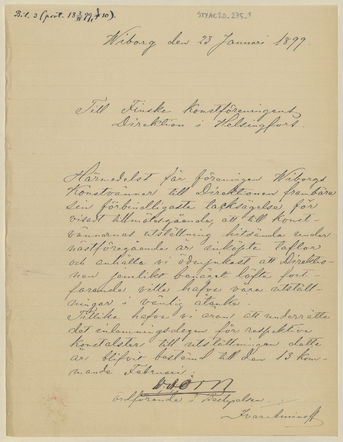 Bil. 2 (prot. 18 3/2 99, § 10).
Wiborg den 23 Januari 1899
Till Finska Konstföreningens
Direktion i Helsingfors.
Härmedelst får föreningen Wiborgs
Konstvänner till Direktionen frambära
sin förbindligaste tacksägelse för
visadt tillmötesgående, att till konst-
vännernas utställning hitsända under
nästföregående år inköpta taflor
och anhålla vi ödmjukast att Direktio-
nen jemlikt benäget löfte fort-
farande ville hafva våra utställ-
ningar i vänlig åtanke.
Tillika hafva vi äran att underrätta
det inlemningsdagen för respektive
konstalster till utställningen detta
år blifvit bestämd till den 13 kom-
mande Februari.
ordförande i Bestyrelsen
Ivar Aminoff